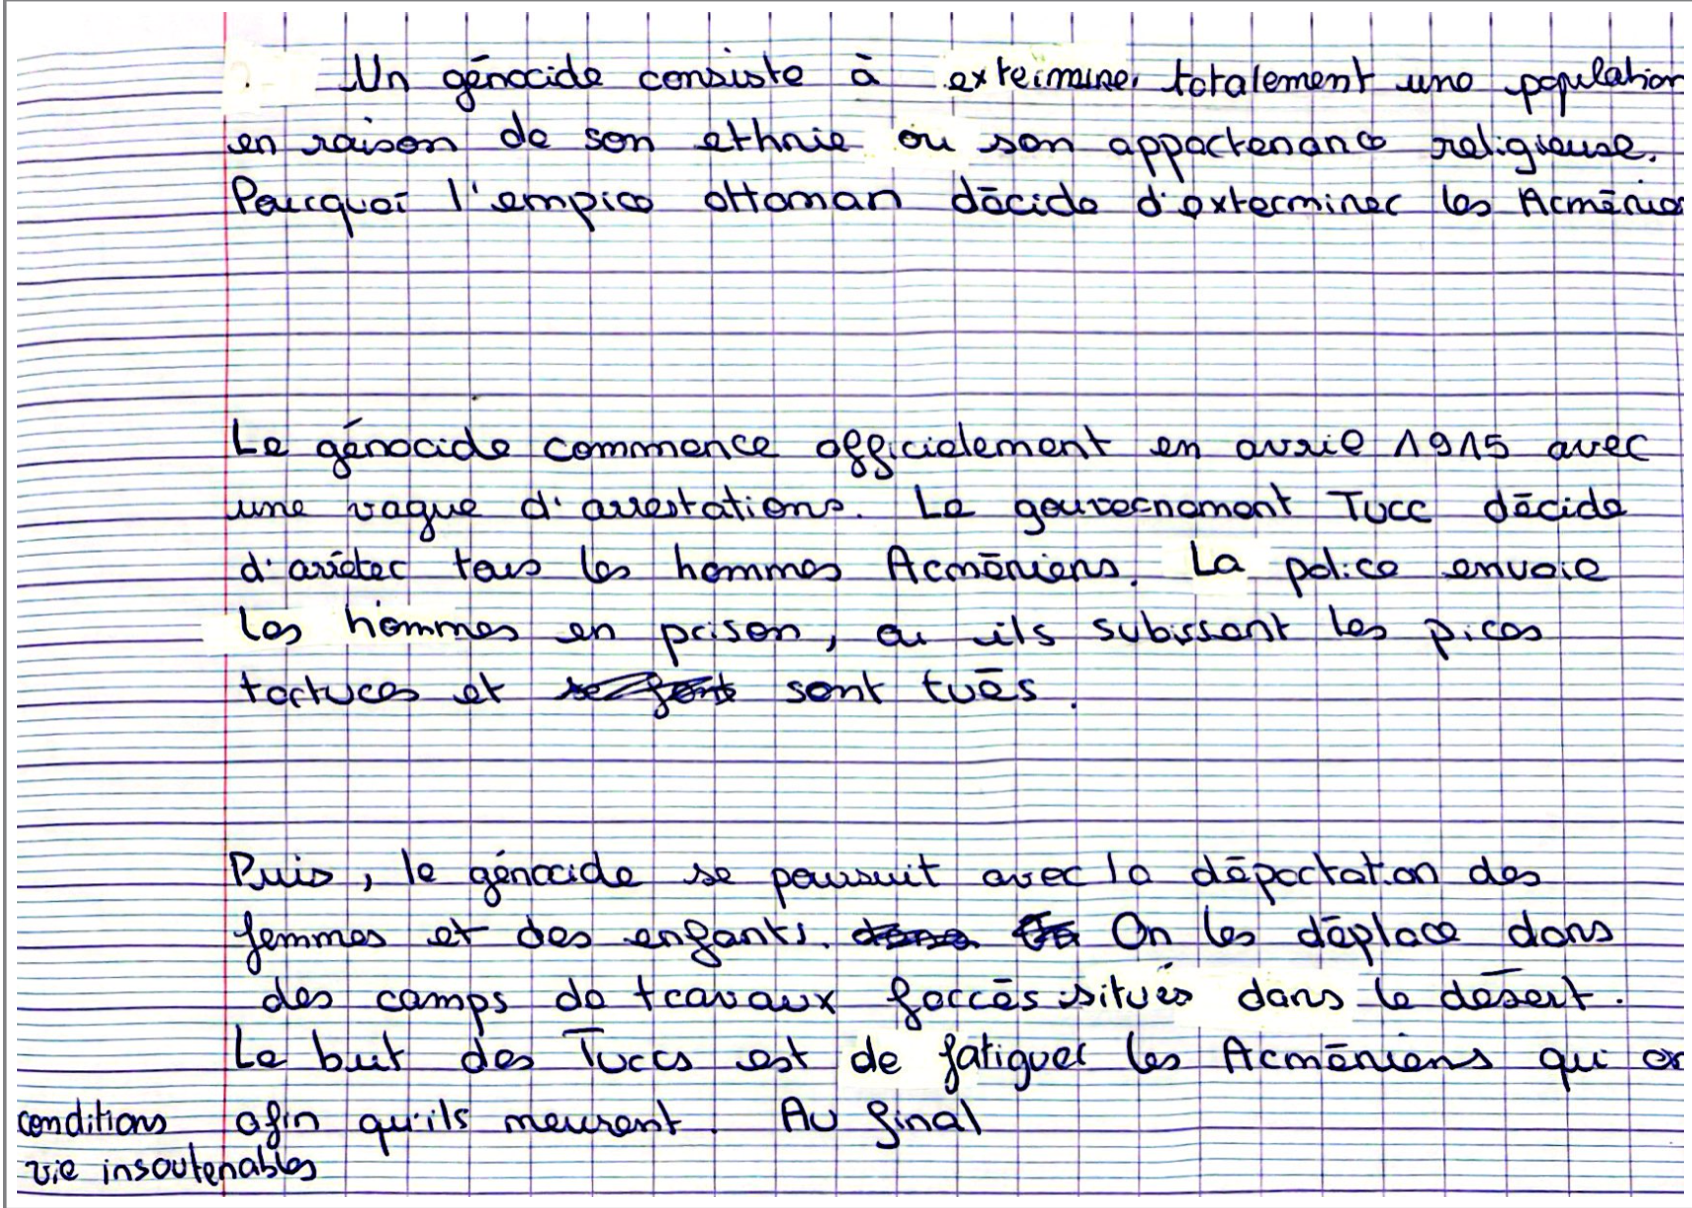 Un génocide consiste à exterminer totalement une population
en raison de son ethnie ou son appartenance religieuse.
Pourquoi l'empire ottoman décide d'exterminer les
Le génocide commence officielement en avrile 1915 avec
une vague d'arrestations. Le gouvernement Turc décide
d'arrêter tous les hommes Arméniens. La police envoie
les hommes en prison, ou ils subissent les pires
tortures et sont tués.
Puis, le génocide se poursuit avec la déportation des
femmes et des enfants. On les déplace dans
des camps de travaux forcés situés dans le désert.
Le but des Turcs est de fatiguer les Arméniens qui
conditions afin qu'ils meurent. Au final
vie insoutenables